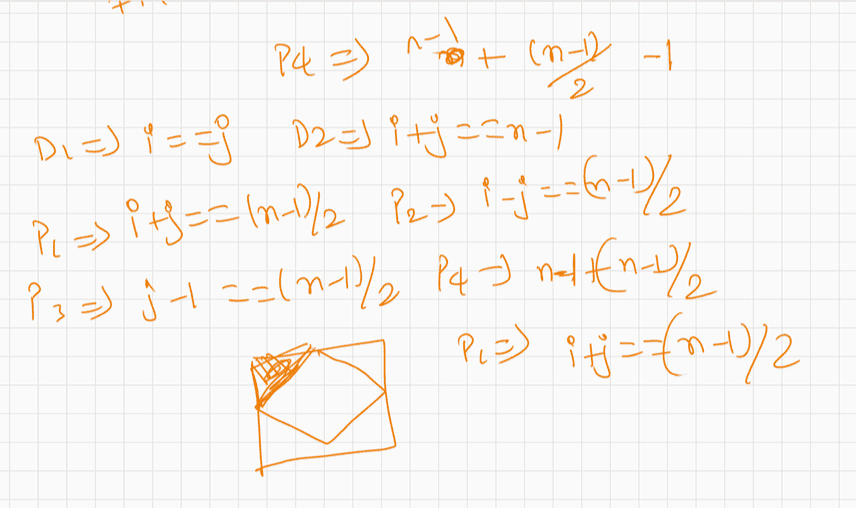 P4 => n-1 + (n-1)/2 -1
D1 => i==j D2 => i+j==n-1
P1 => i+j==(n-1)/2 P2 -> i-j==(n-1)/2
P3 => j-1 ==(n-1)/2 P4 -> n-1+(n-1)/2
P1 => i+j==(n-1)/2